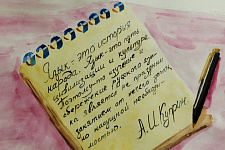 Язык - это история
народа. Язык - это путь
цивилизации и культуры.
Поэтому-то изучение и
сбережение русского языка
является не праздным
занятием от нечего делать,
но насущной необходи-
мостью.
А.И.Куприн